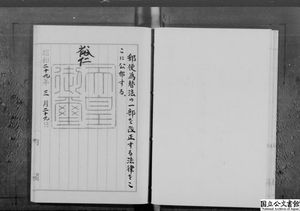 郵便為替法の一部を改正する法律をこ
こに公布する。
裕仁
天皇
御璽
昭和二十九年三月二十九日
国立公文書館
National Archives of Japan